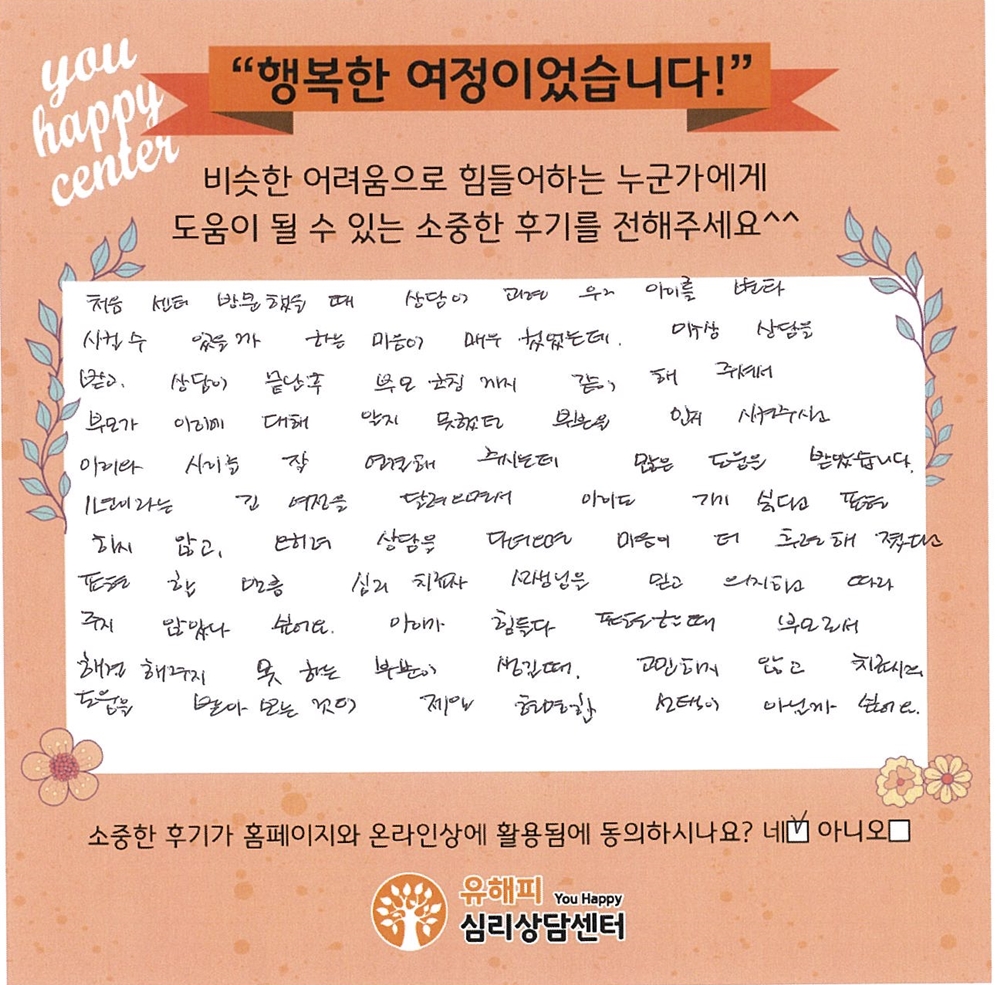 you
happy
center
“행복한 여정이었습니다!”
비슷한 어려움으로 힘들어하는 누군가에게
도움이 될 수 있는 소중한 후기를 전해주세요^^
처음 센터 방문했을 때 상담이 과연 우리 아이를 변화
시킬 수 있을까 하는 마음이 매우 컸었는데. 막상 상담을
받고. 상담이 끝난 후 부모 코칭까지 같이 해 주셔서
부모가 아이에 대해 알지 못했던 부분을 인지 시켜주시고
아이와 사이를 잘 연결해 주시는데 많은 도움을 받았습니다.
1년이라는 긴 여정을 달려오면서 아이도 가기 싫다고 표현
하지 않고, 오히려 상담을 다녀오면 마음이 더 후련해 졌다고
표현 할 만큼 심리 치료사 선생님을 믿고 의지하고 따라
주지 않았나 싶어요. 아이가 힘들다 표현할 때 부모로서
해결 해주지 못 하는 부분이 생길때. 고민하지 않고
도움을 받아 보는 것이 제일 현명한 선택이 아닌가 싶어요.
소중한 후기가 홈페이지와 온라인상에 활용됨에 동의하시나요? 네☑ 아니오☐
유해피 You Happy
심리상담센터